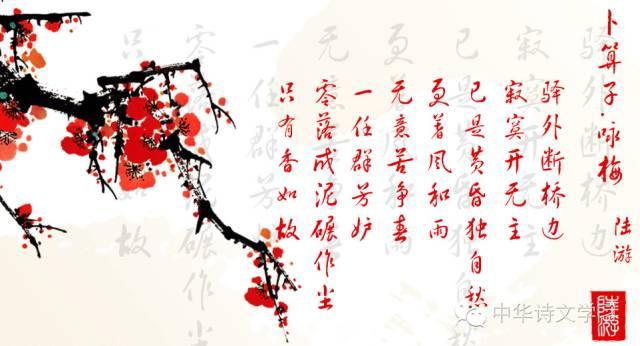 卜算子·咏梅
陆游
驿外断桥边
寂寞开无主
已是黄昏独自愁
更着风和雨
无意苦争春
一任群芳妒
零落成泥碾作尘
只有香如故
陆游
中华诗文学